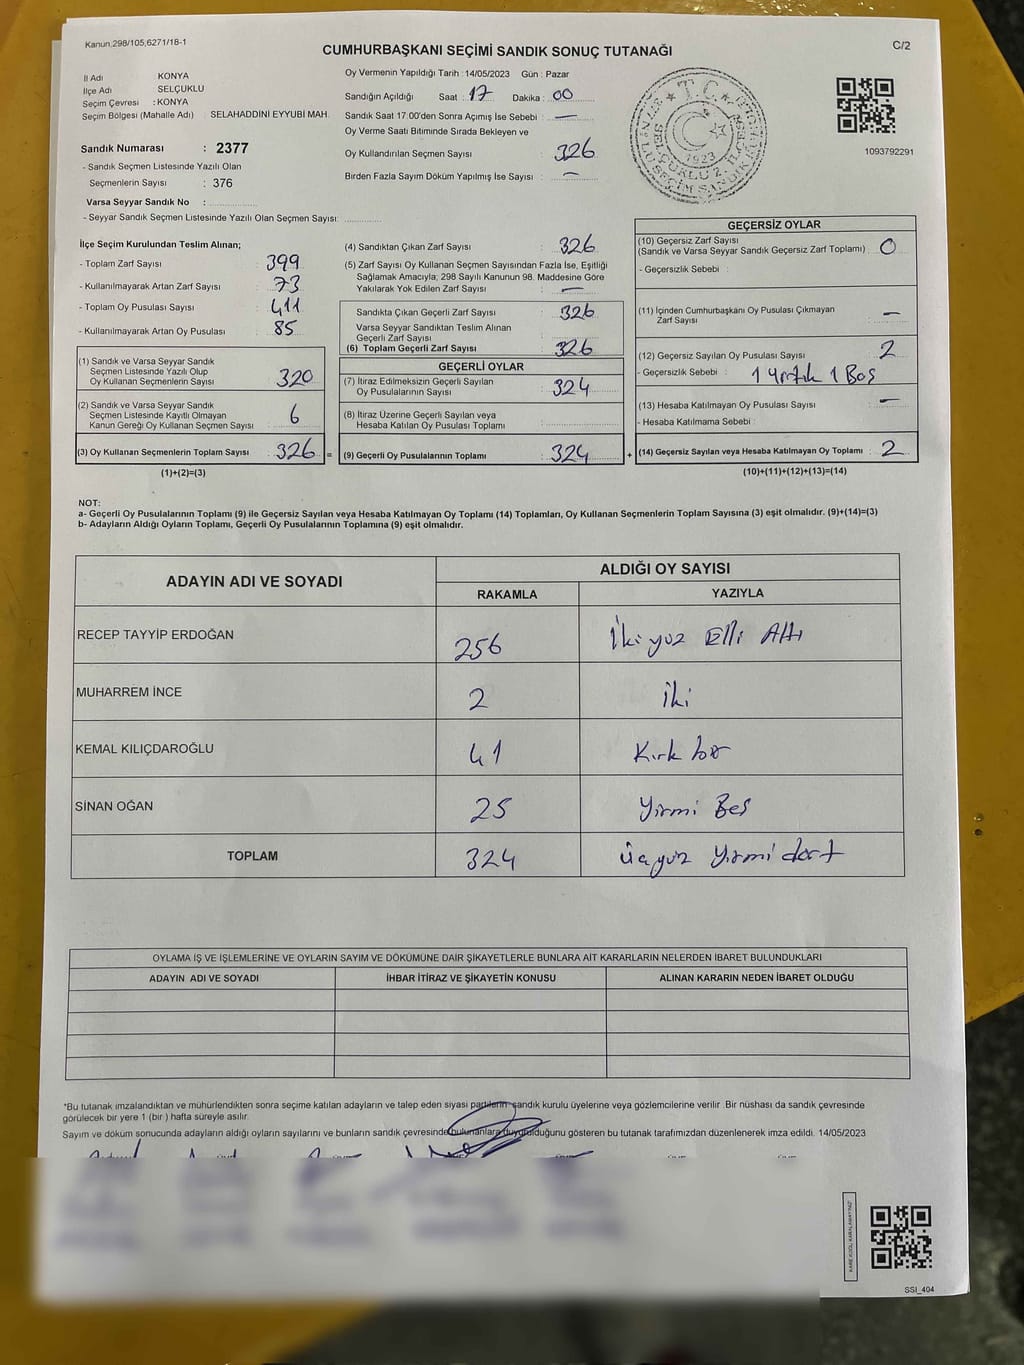 Kanun,298/105,6271/18-1
C/2
CUMHURBAŞKANI SEÇİMİ SANDIK SONUÇ TUTANAĞI
İl Adı KONYA
İlçe Adı SELÇUKLU
Seçim Çevresi : KONYA
Seçim Bölgesi (Mahalle Adı) : SELAHADDİNİ EYYUBİ MAH.
Sandık Numarası : 2377
- Sandık Seçmen Listesinde Yazılı Olan
Seçmenlerin Sayısı : 376
Varsa Seyyar Sandık No :
- Seyyar Sandık Seçmen Listesinde Yazılı Olan Seçmen Sayısı:
Oy Vermenin Yapıldığı Tarih : 14/05/2023 Gün : Pazar
Sandığın Açıldığı Saat : 17 Dakika : 00
Sandık Saat 17:00'den Sonra Açımış İse Sebebi : —
Oy Verme Saati Bitiminde Sırada Bekleyen ve
Oy Kullandırılan Seçmen Sayısı : 326
Birden Fazla Sayım Döküm Yapılmış İse Sayısı : —
T.C.
1923
1093792291
İlçe Seçim Kurulundan Teslim Alınan;
- Toplam Zarf Sayısı : 399
- Kullanılmayarak Artan Zarf Sayısı : 73
- Toplam Oy Pusulası Sayısı : 411
- Kullanılmayarak Artan Oy Pusulası : 85
(1) Sandık ve Varsa Seyyar Sandık
Seçmen Listesinde Yazılı Olup
Oy Kullanan Seçmenlerin Sayısı : 320
(2) Sandık ve Varsa Seyyar Sandık
Seçmen Listesinde Kayıtlı Olmayan
Kanun Gereği Oy Kullanan Seçmen Sayısı : 6
(3) Oy Kullanan Seçmenlerin Toplam Sayısı : 326 =
(1)+(2)=(3)
(4) Sandıktan Çıkan Zarf Sayısı : 326
(5) Zarf Sayısı Oy Kullanan Seçmen Sayısından Fazla İse, Eşitliği
Sağlamak Amacıyla; 298 Sayılı Kanunun 98. Maddesine Göre
Yakılarak Yok Edilen Zarf Sayısı : —
Sandıkta Çıkan Geçerli Zarf Sayısı : 326
Varsa Seyyar Sandıktan Teslim Alınan
Geçerli Zarf Sayısı :
(6) Toplam Geçerli Zarf Sayısı 326
GEÇERLİ OYLAR
(7) İtiraz Edilmeksizin Geçerli Sayılan
Oy Pusulalarının Sayısı : 324
(8) İtiraz Üzerine Geçerli Sayılan veya
Hesaba Katılan Oy Pusulası Toplamı :
(9) Geçerli Oy Pusulalarının Toplamı : 324 +
GEÇERSİZ OYLAR
(10) Geçersiz Zarf Sayısı
(Sandık ve Varsa Seyyar Sandık Geçersiz Zarf Toplamı) : 0
- Geçersizlik Sebebi :
(11) İçinden Cumhurbaşkanı Oy Pusulası Çıkmayan
Zarf Sayısı : —
(12) Geçersiz Sayılan Oy Pusulası Sayısı : 2
- Geçersizlik Sebebi : 1 Yırtık 1 Boş
(13) Hesaba Katılmayan Oy Pusulası Sayısı : —
- Hesaba Katılmama Sebebi :
(14) Geçersiz Sayılan veya Hesaba Katılmayan Oy Toplamı : 2
(10)+(11)+(12)+(13)=(14)
NOT:
a- Geçerli Oy Pusulalarının Toplamı (9) ile Geçersiz Sayılan veya Hesaba Katılmayan Oy Toplamı (14) Toplamları, Oy Kullanan Seçmenlerin Toplam Sayısına (3) eşit olmalıdır. (9)+(14)=(3)
b- Adayların Aldığı Oyların Toplamı, Geçerli Oy Pusulalarının Toplamına (9) eşit olmalıdır.
ADAYIN ADI VE SOYADI ALDIĞI OY SAYISI
RAKAMLA YAZIYLA
RECEP TAYYİP ERDOĞAN 256 İki yüz Elli Altı
MUHARREM İNCE 2 İki
KEMAL KILIÇDAROĞLU 41 Kırk bir
SİNAN OĞAN 25 Yirmi Beş
TOPLAM 324 üçyüz Yirmi dört
OYLAMA İŞ VE İŞLEMLERİNE VE OYLARIN SAYIM VE DÖKÜMÜNE DAİR ŞİKAYETLERLE BUNLARA AİT KARARLARIN NELERDEN İBARET BULUNDUKLARI
ADAYIN ADI VE SOYADI İHBAR İTİRAZ VE ŞİKAYETİN KONUSU ALINAN KARARIN NEDEN İBARET OLDUĞU
*Bu tutanak imzalandıktan ve mühürlendikten sonra seçime katılan adayların ve talep eden siyasi partilerin sandık kurulu üyelerine veya gözlemcilerine verilir .Bir nüshası da sandık çevresinde
görülecek bir yere 1 (bir ) hafta süreyle asılır.
Sayım ve döküm sonucunda adayların aldığı oyların sayılarını ve bunların sandık çevresinde bulunanlara duyurulduğunu gösteren bu tutanak tarafımızdan düzenlenerek imza edildi. 14/05/2023
KARE KODU KARALAMAYINIZ!
SSI_404